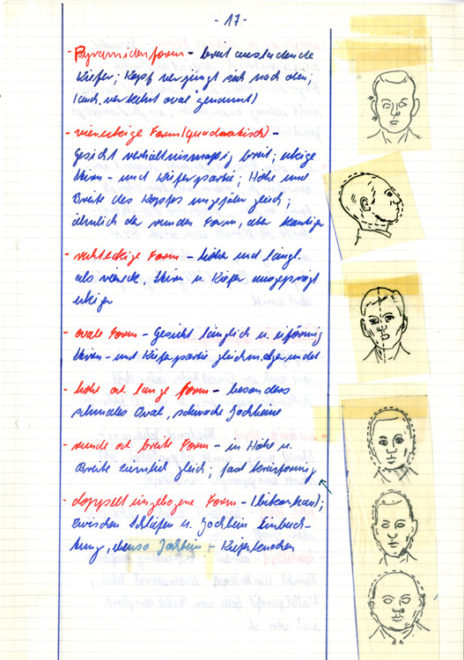 - 17 -
- Pyramidenform - breit ausladende
Kiefer; Kopf verjüngt sich nach oben;
(auch verkehrt oval genannt)
- viereckige Form (quadratisch) -
Gesicht verhältnismäßig breit; eckige
Stirn- und Kieferpartie; Höhe und
Breite des Kopfes ungefähr gleich;
ähnlich der runden Form, aber kantiger
- rechteckige Form - höher und längl.
als viereck., Stirn u. Kiefer ausgeprägt
eckiger
- ovale Form - Gesicht länglich u. eiförmig
Stirn- und Kieferpartie gleichm.
- hohe od. lange Form - besonders
schmales Oval, schwache Jochbeine
- runde od. breite Form - in Höhe u.
Breite ziemlich gleich; fast kreisförmig
- doppelt eingebogene Form - (bikonkav);
zwischen Schläfen u. Jochbein Einbuch-
tung, ebenso Jochbein + Kieferknochen